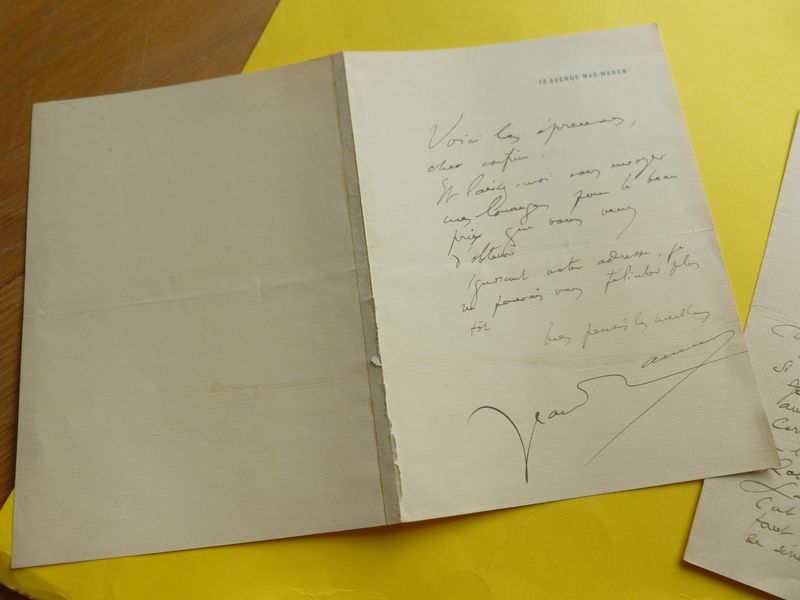 13 AVENUE MAC-MAHON
Voici les épreuves,
cher confrère.
Et laissez-moi vous envoyer
mes louanges pour le beau
prix que vous venez
d'obtenir
Ignorant votre adresse, je
ne pouvais vous féliciter plus
tôt
Mes pensées les meilleures
Jean
Si
tout